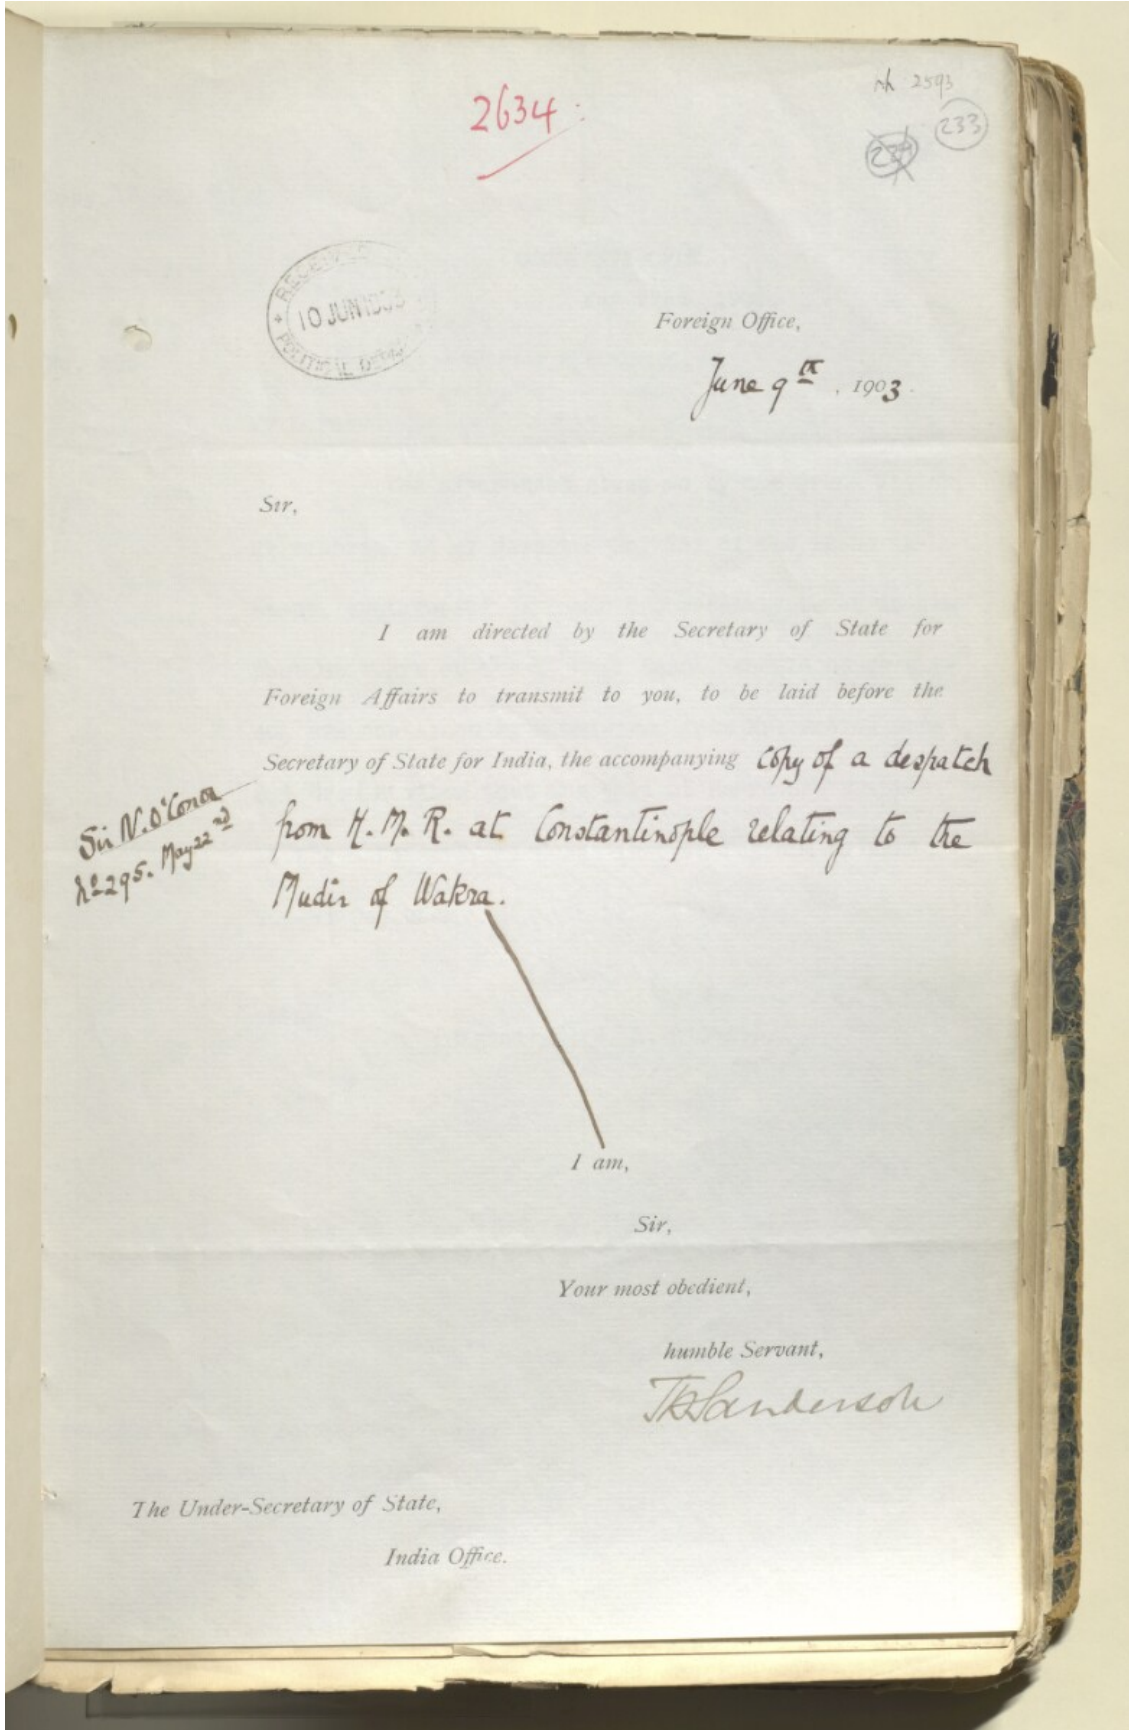 2634
2593
233
234
RECEIVED
10 JUN 1903
POLITICAL
Foreign Office,
June 9th, 1903.
Sir,
I am directed by the Secretary of State for
Foreign Affairs to transmit to you, to be laid before the
Secretary of State for India, the accompanying copy of a despatch
from H. M. R. at Constantinople relating to the
Mudir of Wakra.
Sir N. O'Conor
No 295. May 22nd
I am,
Sir,
Your most obedient,
humble Servant,
TH Sanderson
The Under-Secretary of State,
India Office.